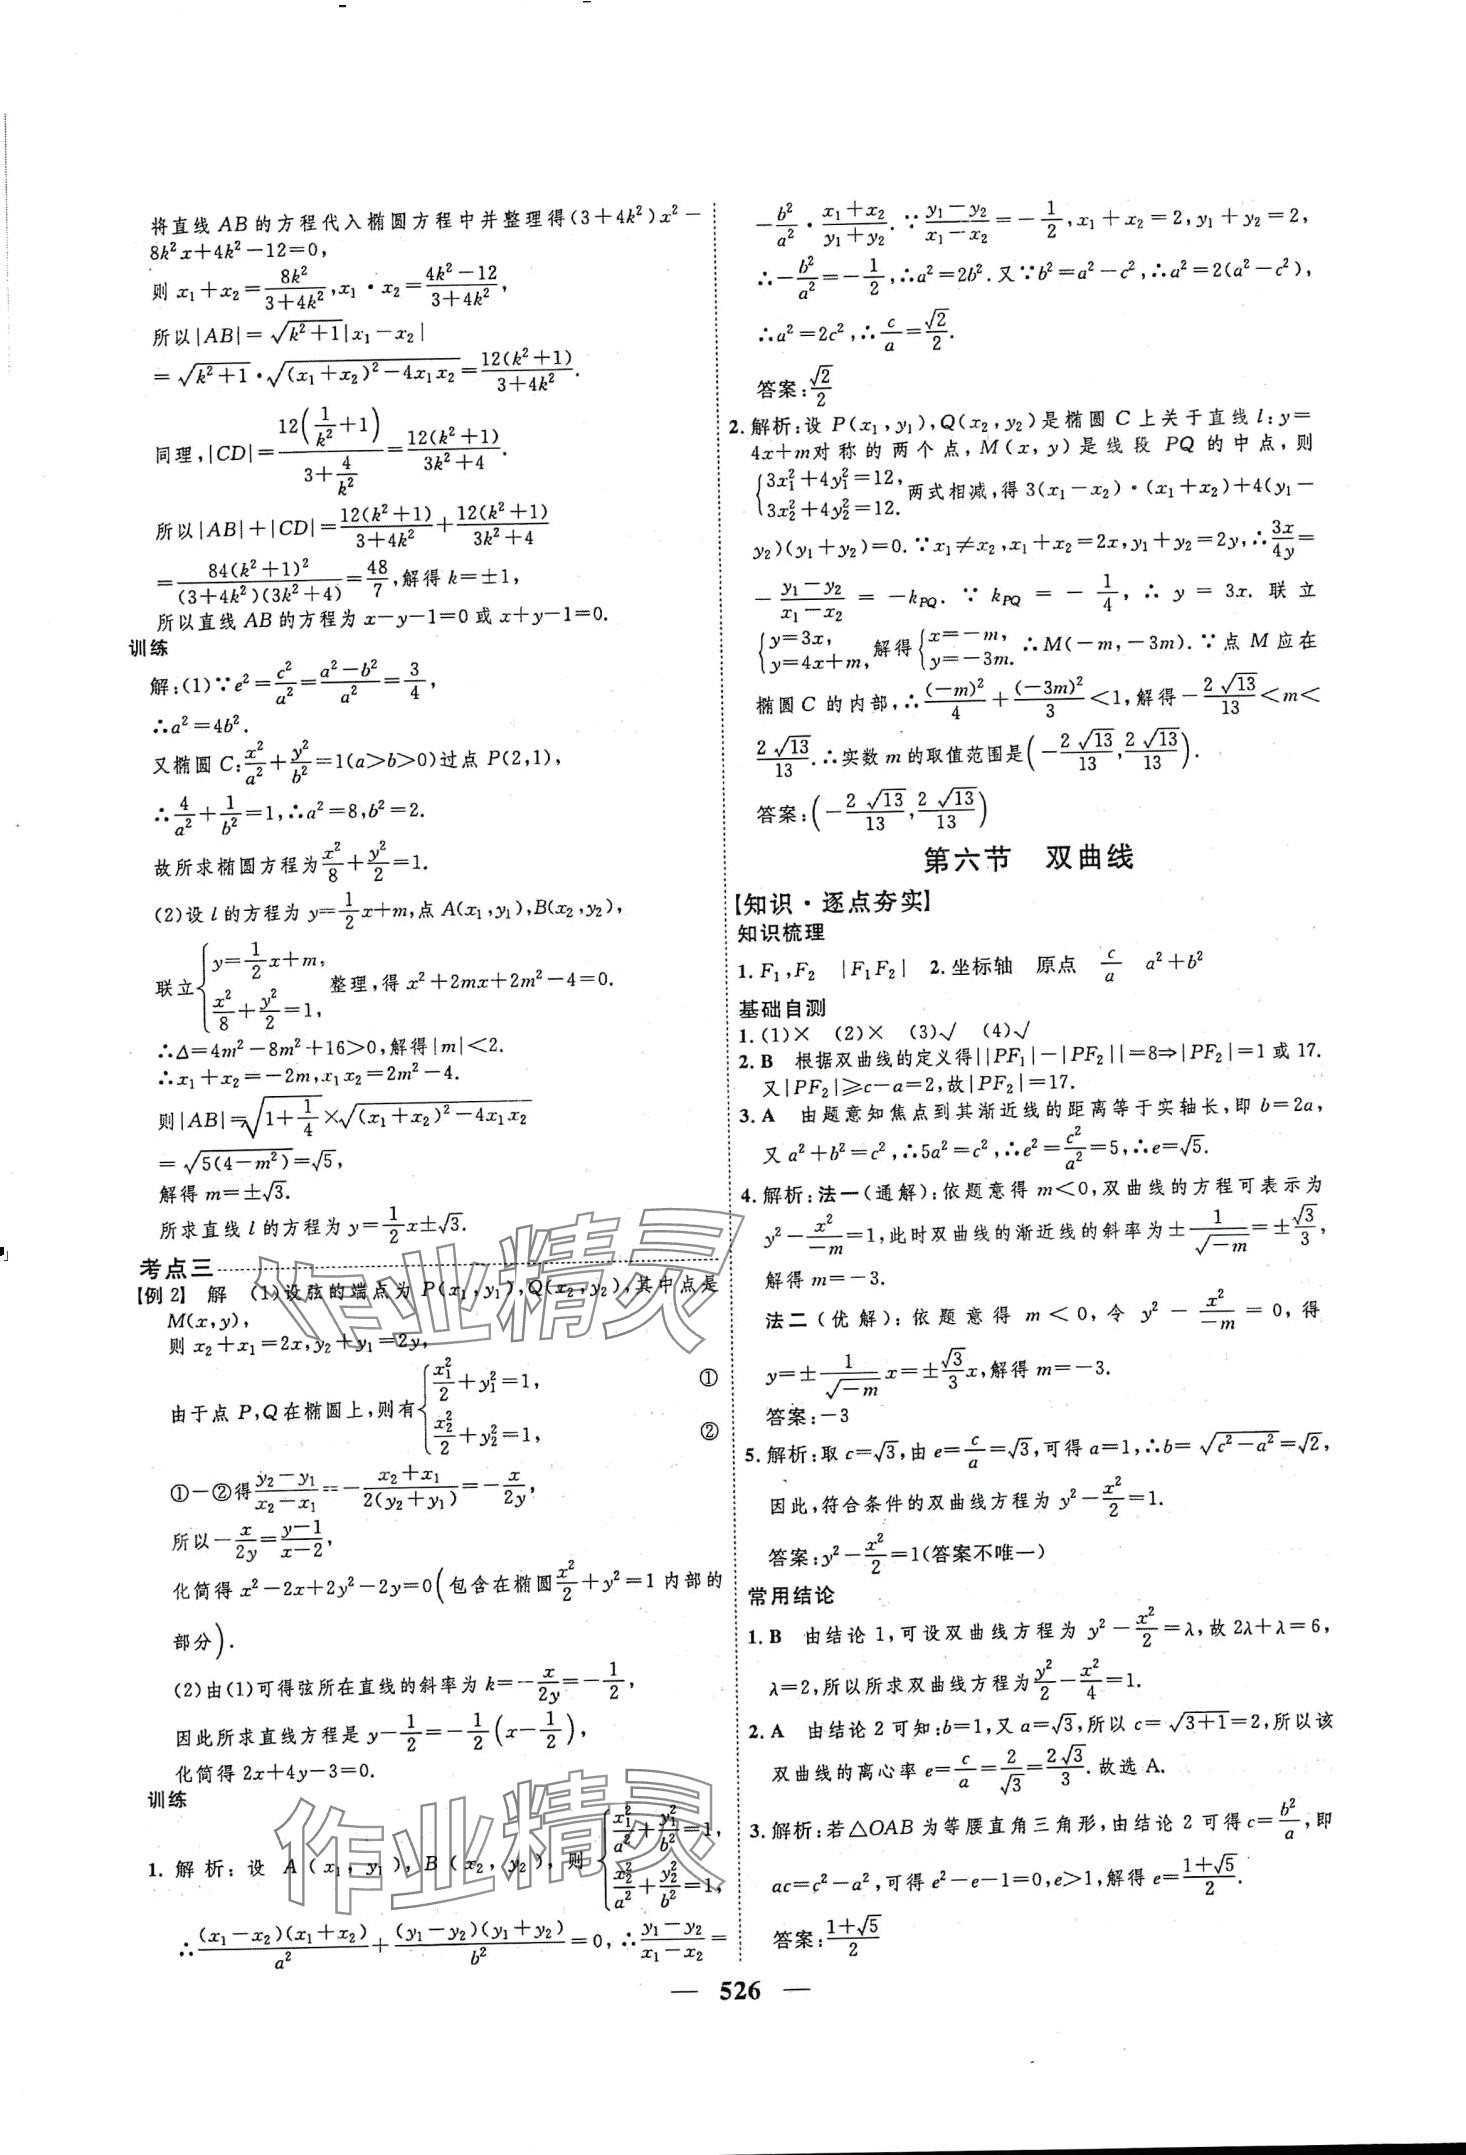 将直线 AB 的方程代入椭圆方程中并整理得(3+4k²)x²-
8k²x+4k²-12=0,
则 x₁+x₂=8k²/(3+4k²),x₁·x₂=(4k²-12)/(3+4k²),
所以|AB|=√(k²+1)|x₁-x₂|
=√(k²+1)·√((x₁+x₂)²-4x₁x₂)=12(k²+1)/(3+4k²).
同理,|CD|=12(1/k²+1)/(3+4/k²)=12(k²+1)/(3k²+4).
所以|AB|+|CD|=12(k²+1)/(3+4k²)+12(k²+1)/(3k²+4)
=84(k²+1)²/((3+4k²)(3k²+4))=48/7,解得 k=±1,
所以直线 AB 的方程为 x-y-1=0 或 x+y-1=0.
训练
解:(1)∵e²=c²/a²=(a²-b²)/a²=3/4,
∴a²=4b².
又椭圆 C:x²/a²+y²/b²=1(a>b>0)过点 P(2,1),
∴4/a²+1/b²=1,∴a²=8,b²=2.
故所求椭圆方程为x²/8+y²/2=1.
(2)设 l 的方程为 y=1/2x+m,点 A(x₁,y₁),B(x₂,y₂),
联立{y=1/2x+m, x²/8+y²/2=1, 整理,得 x²+2mx+2m²-4=0.
∴Δ=4m²-8m²+16>0,解得|m|<2.
∴x₁+x₂=-2m,x₁x₂=2m²-4.
则|AB|=√(1+1/4)×√((x₁+x₂)²-4x₁x₂)
=√(5(4-m²))=√5,
解得 m=±√3.
所求直线 l 的方程为 y=1/2x±√3.
考点三
【例2】 解 (1)设弦的端点为 P(x₁,y₁),Q(x₂,y₂),其中点是
M(x,y),
则 x₂+x₁=2x,y₂+y₁=2y,
由于点 P,Q 在椭圆上,则有{x₁²/2+y₁²=1, ① x₂²/2+y₂²=1, ②
①-②得(y₂-y₁)/(x₂-x₁)=-(x₂+x₁)/(2(y₂+y₁))=-x/2y,
所以-x/2y=(y-1)/(x-2),
化简得 x²-2x+2y²-2y=0(包含在椭圆x²/2+y²=1 内部的
部分).
(2)由(1)可得弦所在直线的斜率为 k=-x/2y=-1/2,
因此所求直线方程是 y-1/2=-1/2(x-1/2),
化简得 2x+4y-3=0.
训练
1. 解析:设 A(x₁,y₁),B(x₂,y₂),则{x₁²/a²+y₁²/b²=1, x₂²/a²+y₂²/b²=1,
∴(x₁-x₂)(x₁+x₂)/a²+(y₁-y₂)(y₁+y₂)/b²=0,∴(y₁-y₂)/(x₁-x₂)=
-b²/a²·(x₁+x₂)/(y₁+y₂).∵(y₁-y₂)/(x₁-x₂)=-1/2,x₁+x₂=2,y₁+y₂=2,
∴-b²/a²=-1/2,∴a²=2b².又∵b²=a²-c²,∴a²=2(a²-c²),
∴a²=2c²,∴c/a=√2/2.
答案:√2/2
2. 解析:设 P(x₁,y₁),Q(x₂,y₂)是椭圆 C 上关于直线 l:y=
4x+m对称的两个点,M(x,y)是线段 PQ 的中点,则
{3x₁²+4y₁²=12, 3x₂²+4y₂²=12. 两式相减,得 3(x₁-x₂)·(x₁+x₂)+4(y₁-
y₂)(y₁+y₂)=0.∵x₁≠x₂,x₁+x₂=2x,y₁+y₂=2y,∴3x/4y=
-(y₁-y₂)/(x₁-x₂)=-k_PQ.∵k_PQ=-1/4,∴y=3x.联立
{y=3x, y=4x+m, 解得{x=-m, y=-3m. ∴M(-m,-3m).∵点 M 应在
椭圆 C 的内部,∴(-m)²/4+(-3m)²/3<1,解得-2√13/13<m<
2√13/13.∴实数 m 的取值范围是(-2√13/13,2√13/13).
答案:(-2√13/13,2√13/13)
第六节 双曲线
【知识·逐点夯实】
知识梳理
1. F₁,F₂ |F₁F₂| 2. 坐标轴 原点 c/a a²+b²
基础自测
1. (1)× (2)× (3)√ (4)√
2. B 根据双曲线的定义得||PF₁|-|PF₂||=8⇒|PF₂|=1 或 17.
又|PF₂|≥c-a=2,故|PF₂|=17.
3. A 由题意知焦点到其渐近线的距离等于实轴长,即 b=2a,
又 a²+b²=c²,∴5a²=c²,∴e²=c²/a²=5,∴e=√5.
4. 解析:法一(通解):依题意得 m<0,双曲线的方程可表示为
y²-x²/-m=1,此时双曲线的渐近线的斜率为±1/√-m=±√3/3,
解得 m=-3.
法二(优解):依题意得 m<0,令 y²-x²/-m=0,得
y=±1/√-m x=±√3/3x,解得 m=-3.
答案:-3
5. 解析:取 c=√3,由 e=c/a=√3,可得 a=1,∴b=√(c²-a²)=√2,
因此,符合条件的双曲线方程为 y²-x²/2=1.
答案:y²-x²/2=1(答案不唯一)
常用结论
1. B 由结论 1,可设双曲线方程为 y²-x²/2=λ,故 2λ+λ=6,
λ=2,所以所求双曲线方程为y²/2-x²/4=1.
2. A 由结论 2 可知:b=1,又 a=√3,所以 c=√(3+1)=2,所以该
双曲线的离心率 e=c/a=2/√3=2√3/3.故选 A.
3. 解析:若△OAB 为等腰直角三角形,由结论 2 可得 c=b²/a,即
ac=c²-a²,可得 e²-e-1=0,e>1,解得 e=(1+√5)/2.
答案:(1+√5)/2
— 526 —
作业精灵
作业精灵